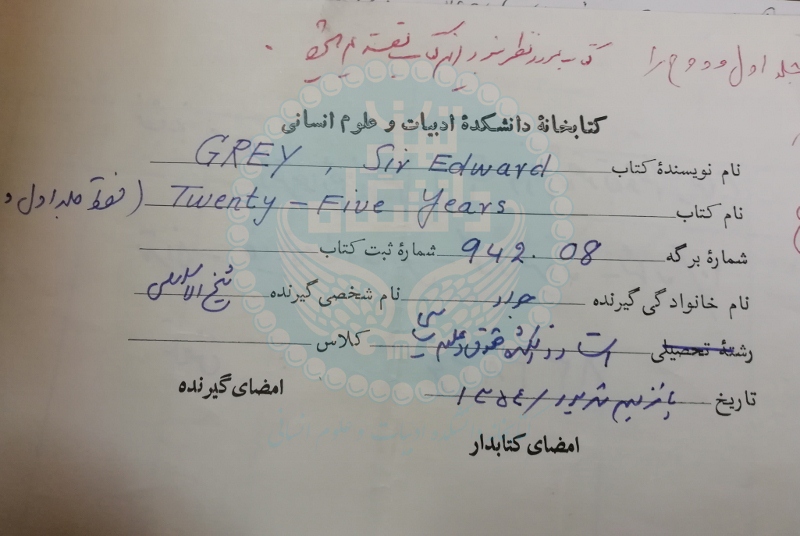 جلد اول و دوم را کتاب مورد نظر نیز در این کتاب
کتابخانهٔ دانشکدهٔ ادبیات و علوم انسانی
نام نویسندهٔ کتاب GREY , Sir Edward
نام کتاب Twenty-Five Years (فقط جلد اول و
شمارهٔ برگه 942.08 شمارهٔ ثبت کتاب
نام خانوادگی گیرنده جواد نام شخصی گیرنده شیخ الاسلامی
رشتهٔ تحصیلی استاد دانشکده حقوق و علوم سیاسی کلاس
تاریخ پانزدهم شهریور / ۱۳۵۴
امضای گیرنده
امضای کتابدار